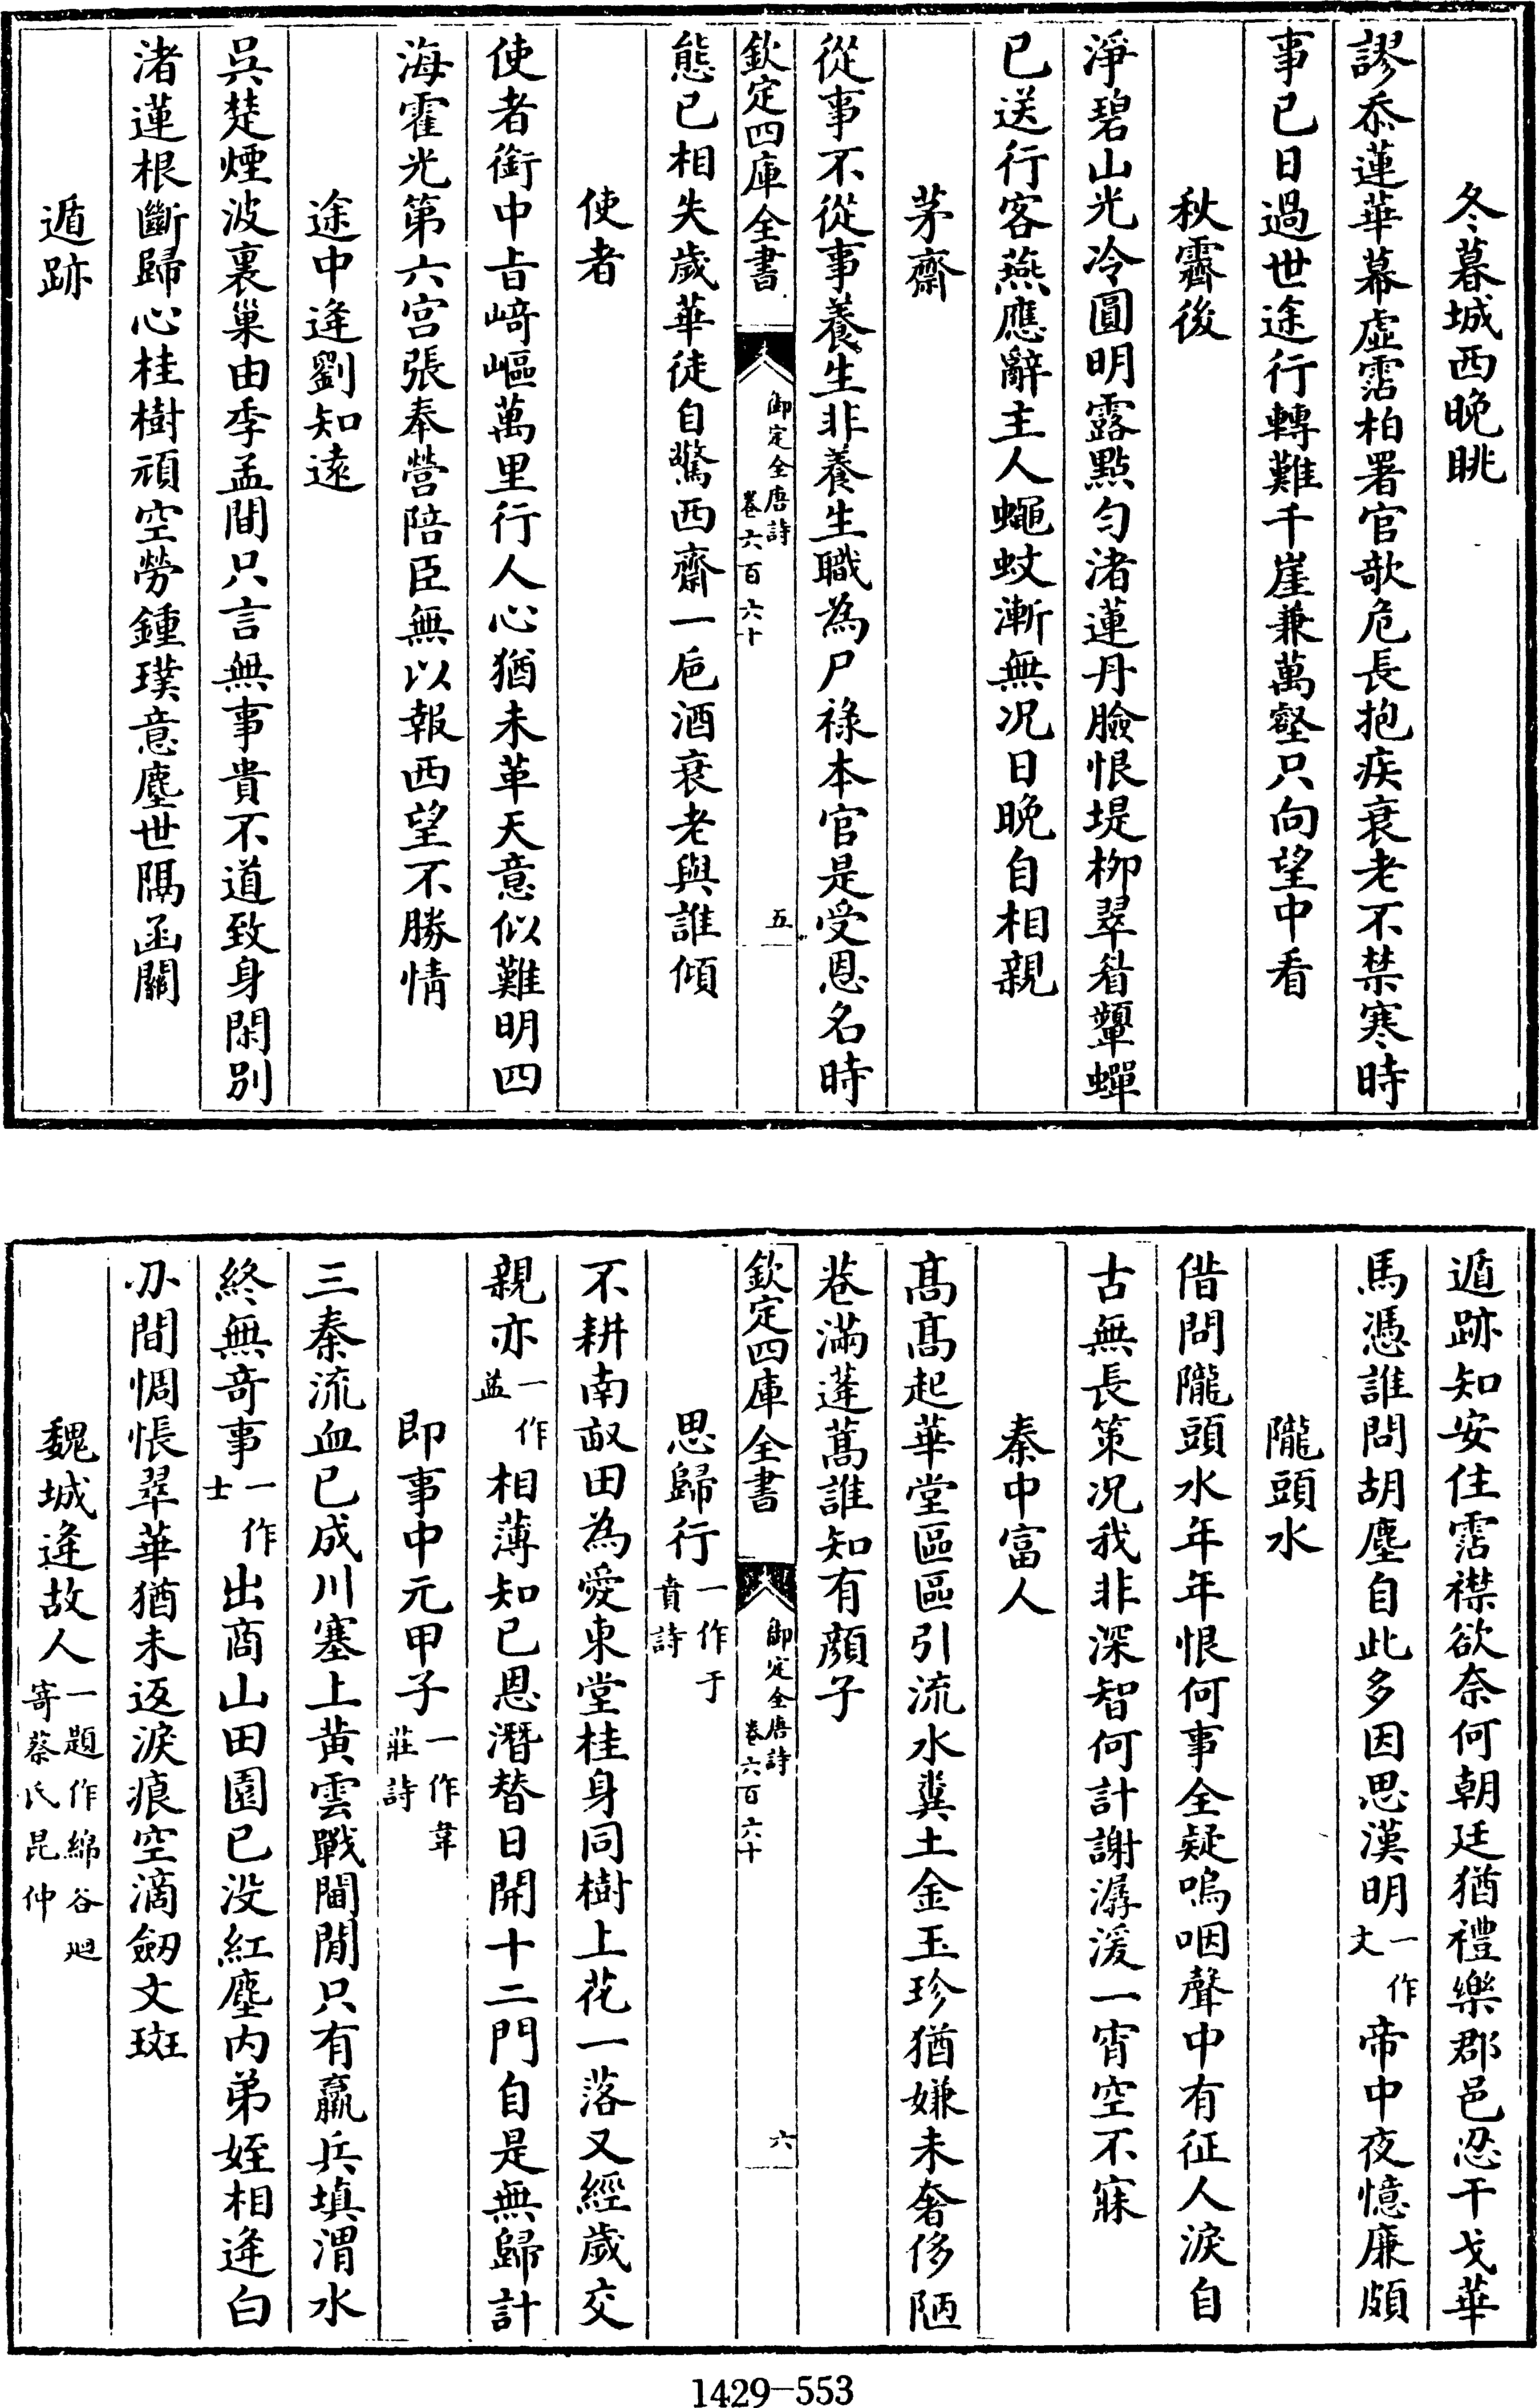 冬暮城西晚眺
謬忝蓮華幕虛霑柏署官欹危長抱疾衰老不禁寒時
事已日過世途行轉難千崖兼萬壑只向望中看
秋霽後
淨碧山光冷圓明露點勻渚蓮丹臉恨堤柳翠眉顰蟬
已送行客燕應辭主人蠅蚊漸無况日晚自相親
茅齋
從事不從事養生非養生職為尸祿本官是受恩名時
欽定四庫全書
御定全唐詩
卷六百六十
五
態已相失歲華徒自驚西齋一巵酒衰老與誰傾
使者
使者銜中旨崎嶇萬里行人心猶未革天意似難明四
海霍光第六宫張奉營陪臣無以報西望不勝情
途中逢劉知遠
吳楚煙波裏巢由季孟間只言無事貴不道致身閑別
渚蓮根斷歸心桂樹頑空勞鍾璞意塵世隔函關
遁跡
遁跡知安住霑襟欲奈何朝廷猶禮樂郡邑忍干戈華
馬憑誰問胡塵自此多因思漢明一作文帝中夜憶廉頗
隴頭水
借問隴頭水年年恨何事全疑嗚咽聲中有征人淚自
古無長策况我非深智何計謝潺湲一宵空不寐
秦中富人
髙髙起華堂區區引流水糞土金玉珍猶嫌未奢侈陋
巷滿蓬蒿誰知有顔子
欽定四庫全書
御定全唐詩
卷六百六十
六
思歸行一作于賁詩
不耕南畝田為愛東堂桂身同樹上花一落又經歲交
親亦一作益相薄知已恩潛替日開十二門自是無歸計
即事中元甲子一作韋莊詩
三秦流血已成川塞上黄雲戰馬閒只有羸兵填渭水
終無奇事一作士出商山田園已没紅塵内弟姪相逢白
刃間惆悵翠華猶未返淚痕空滴劒文斑
魏城逢故人一題作綿谷廻寄蔡氏昆仲
1429-553